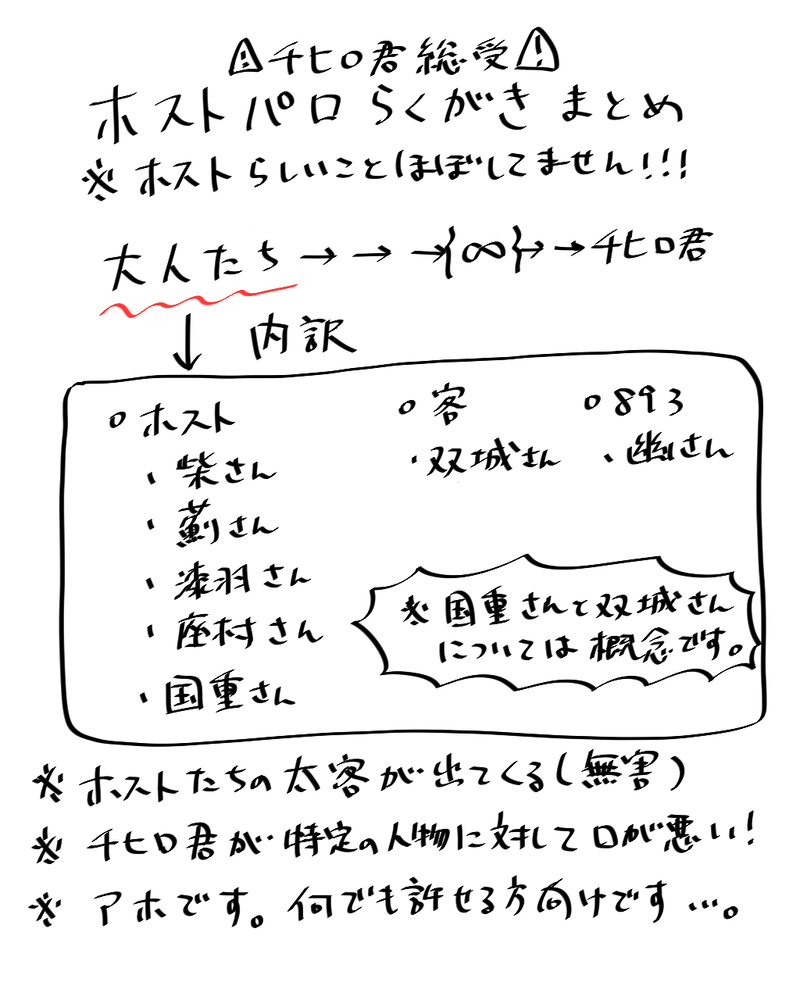 ⚠チヒロ君総受⚠
ホストパロらくがきまとめ
※ホストらしいことほぼしてません!!!
大人たち→→→{∞}→→チヒロ君
↓内訳
○ホスト
・柴さん
・薊さん
・漆羽さん
・座村さん
・国重さん
○客
・双城さん
○893
・幽さん
※国重さんと双城さん
については概念です。
※ホストたちの太客が出てくる(無害)
※チヒロ君が特定の人物に対して口が悪い!
※アホです。何でも許せる方向けです…。